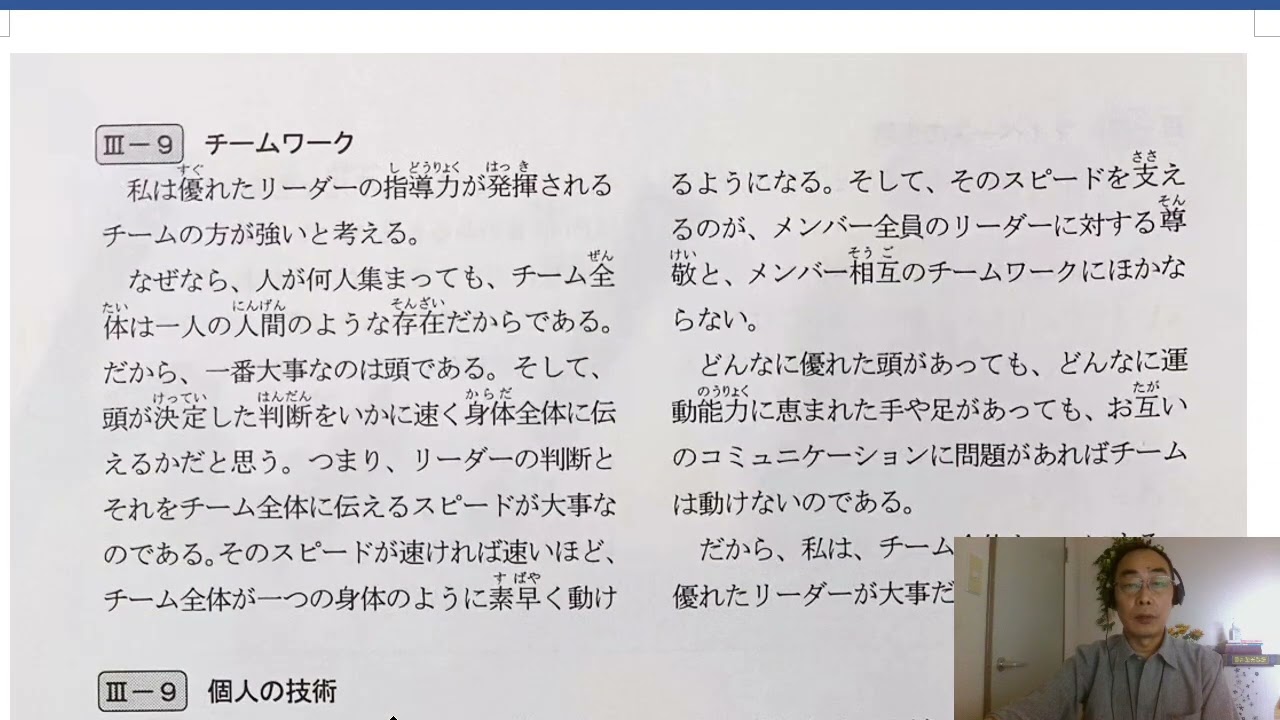 Ⅲ−9 チームワーク
私は優れたリーダーの指導力が発揮される
チームの方が強いと考える。
なぜなら、人が何人集まっても、チーム全
体は一人の人間のような存在だからである。
だから、一番大事なのは頭である。そして、
頭が決定した判断をいかに速く身体全体に伝
えるかだと思う。つまり、リーダーの判断と
それをチーム全体に伝えるスピードが大事な
のである。そのスピードが速ければ速いほど、
チーム全体が一つの身体のように素早く動け
るようになる。そして、そのスピードを支え
るのが、メンバー全員のリーダーに対する尊
敬と、メンバー相互のチームワークにほかな
らない。
どんなに優れた頭があっても、どんなに運
動能力に恵まれた手や足があっても、お互い
のコミュニケーションに問題があればチーム
は動けないのである。
だから、私は、チーム
優れたリーダーが大事だ
Ⅲ−9 個人の技術